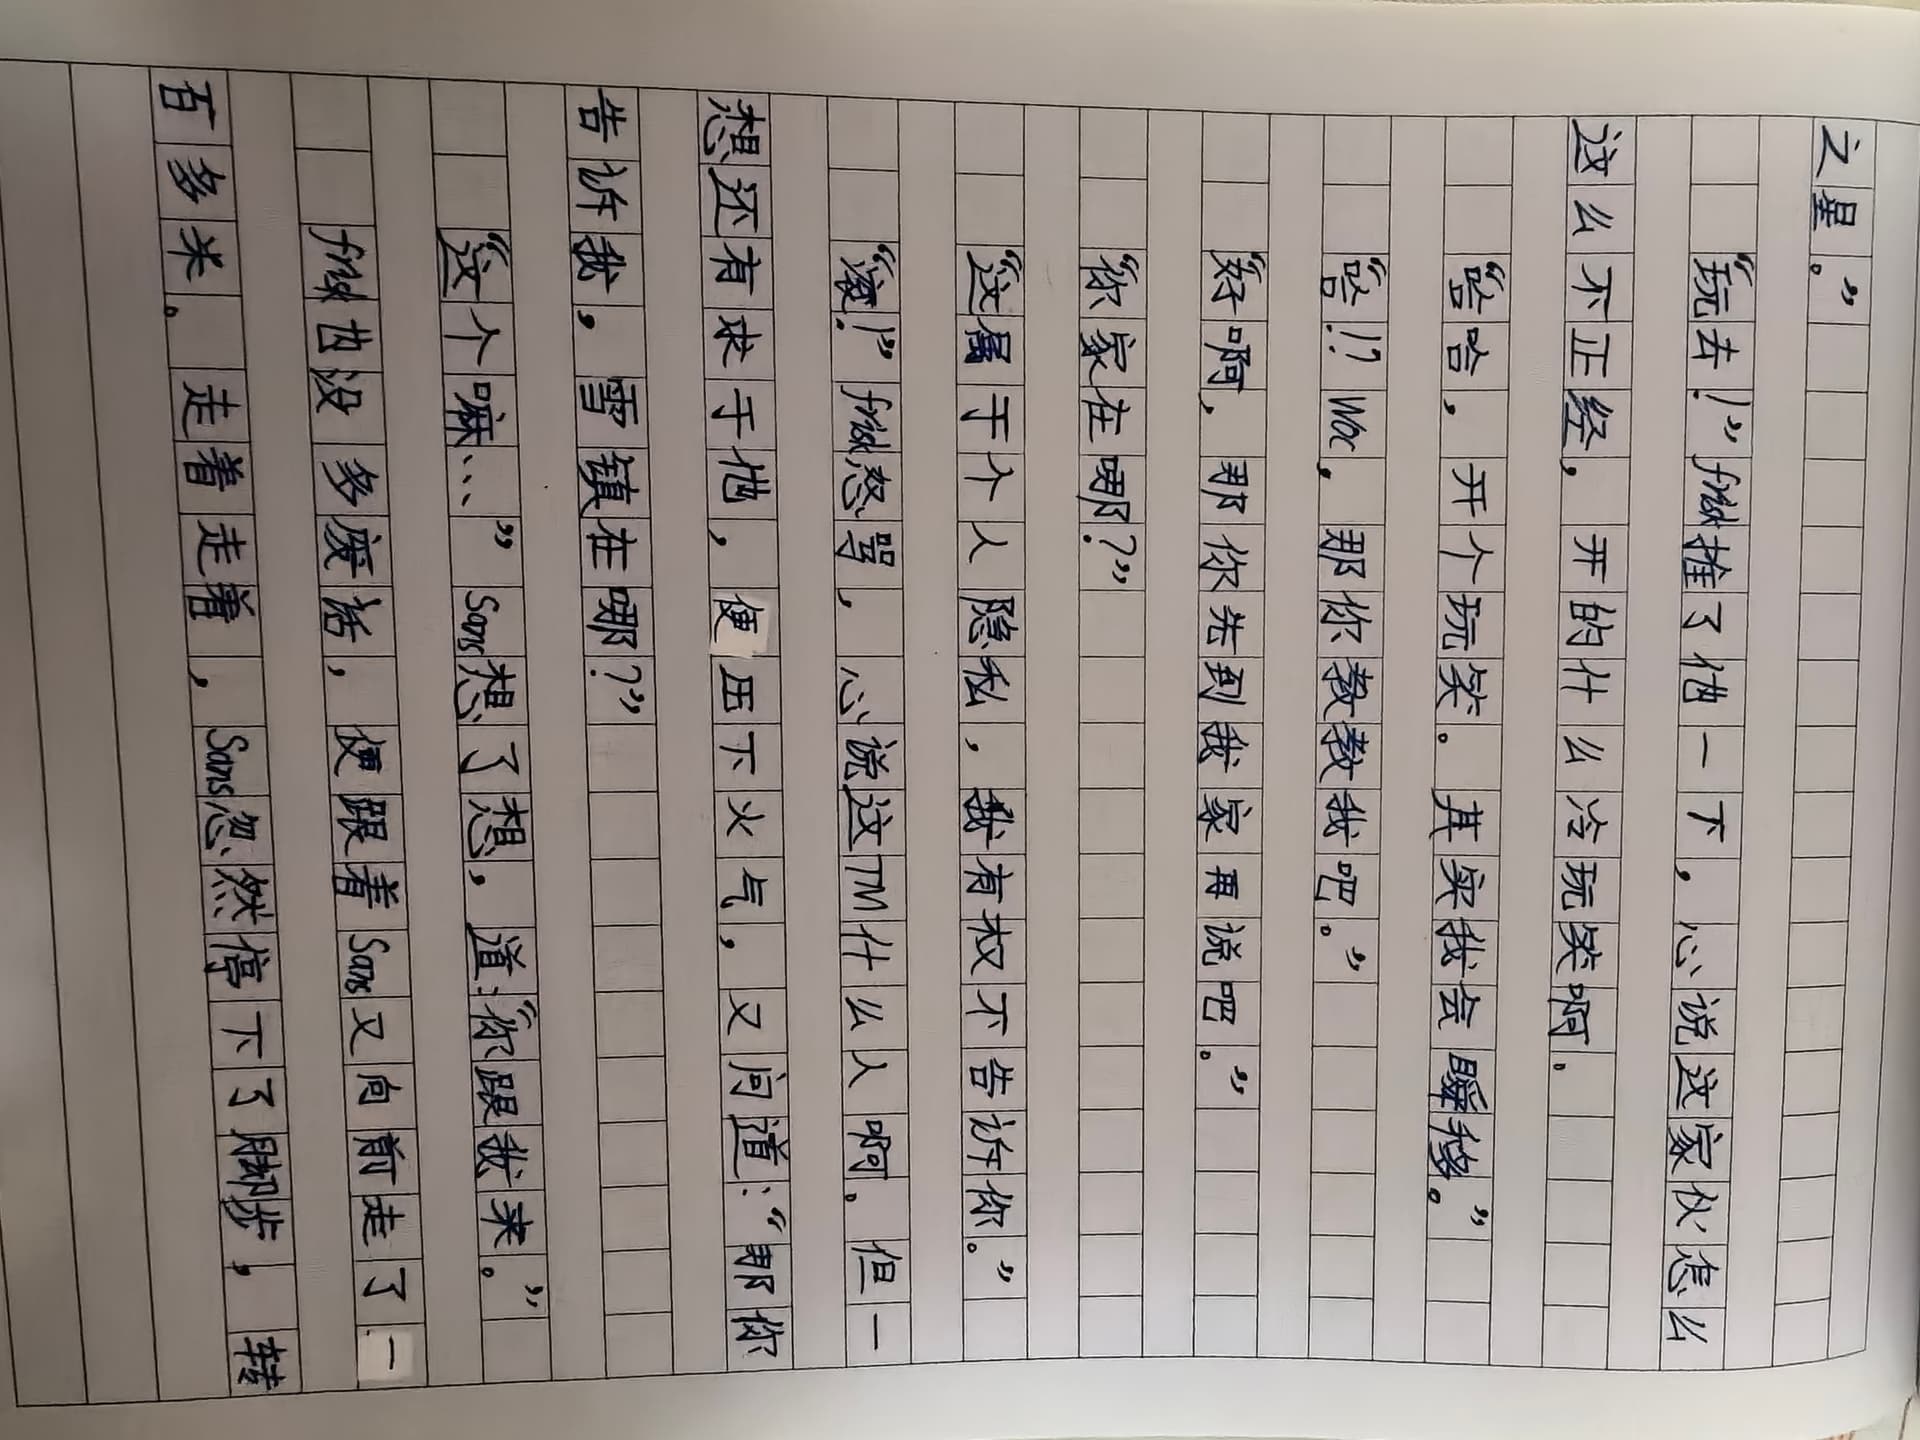 之星。”
“玩去！”frisk推了他一下，心说这家伙怎么
这么不正经，开的什么冷玩笑啊。
“哈哈，开个玩笑。其实我会瞬移。”
“哈!？Woc，那你教教我吧。”
“好啊，那你先到我家再说吧。”
“你家在哪？”
“这属于个人隐私，我有权不告诉你。”
“滚！”frisk怒骂，心说这TM什么人啊。但一
想还有求于他，便压下火气，又问道：“那你
告诉我，雪镇在哪？”
“这个嘛…”Sans想了想，道：“你跟我来。”
frisk也没多废话，便跟着Sans又向前走了一
百多米。走着走着，Sans忽然停下了脚步，转